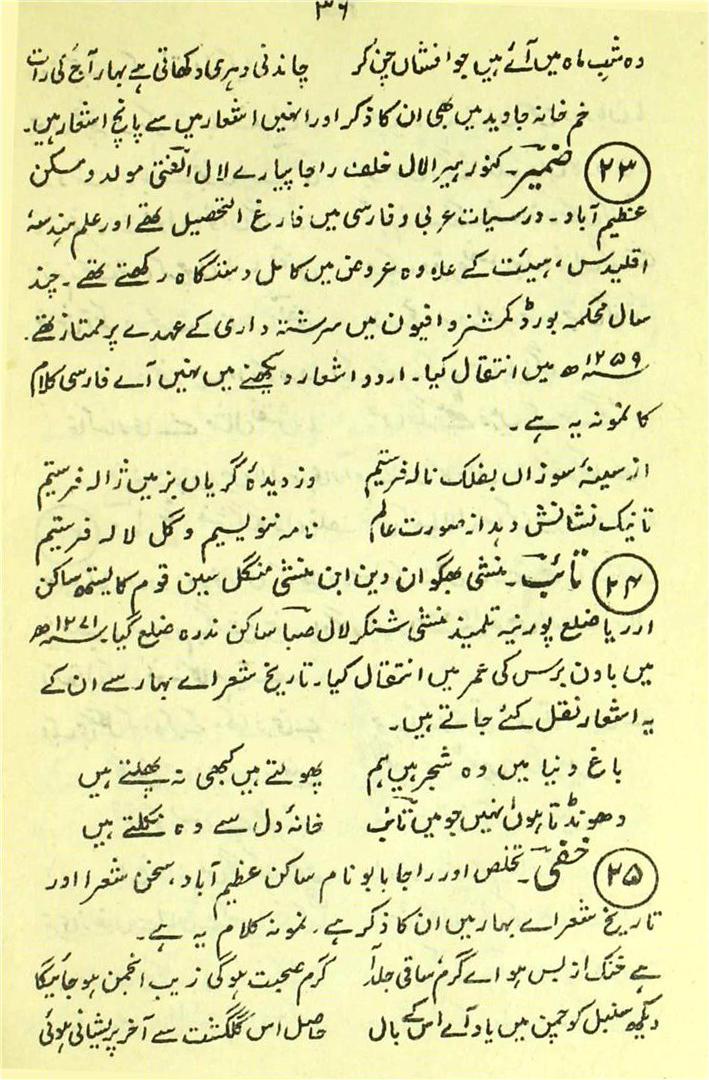 ۳۶
وہ شبِ ماہ میں آئے ہیں جو افشاں چن کر چاندنی دہری دکھاتی ہے بہار آج کی رات
خم خانہ جاوید میں بھی ان کا ذکر اور انہیں اشعار میں سے پانچ اشعار ہیں۔
(۲۳) ضمیرؔ۔ کنور ہیرا لال خلف راجا پیارے لال الفتی مولد و مسکن
عظیم آباد۔ درسیات عربی و فارسی میں فارغ التحصیل تھے اور علم ہندسہ
اقلیدس، ہیئت کے علاوہ عروض میں کامل دستگاہ رکھتے تھے۔ چند
سال محکمہ بورڈ کمشنر و افیون میں سرشتہ داری کے عہدے پر ممتاز تھے۔
۱۲۵۹ھ میں انتقال کیا۔ اردو اشعار دیکھنے میں نہیں آے فارسی کلام
کا نمونہ یہ ہے۔
از سینۂ سوزاں بفلک نالہ فرستیم وز دیدۂ گریاں بزمیں ژالہ فرستیم
تا نیک نشانش دہد از صورت عالم نامہ ننویسیم و گل لالہ فرستیم
(۲۴) تائبؔ۔ منشی بھگوان دین ابن منشی منگل سین قوم کایستھ ساکن
ارریا ضلع پورنیہ تلمیذ منشی شنکر لال صباؔ ساکن ندرہ ضلع گیا۔ ۱۲۷۱ھ
میں باون برس کی عمر میں انتقال کیا۔ تاریخ شعراے بہار سے ان کے
یہ اشعار نقل کئے جاتے ہیں۔
باغ دنیا میں وہ شجر ہیں ہم پھولتے ہیں کبھی نہ پھلتے ہیں
دھونڈتا ہوں نہیں جو میں تائبؔ خانۂ دل سے وہ نکلتے ہیں
(۲۵) خفیؔ۔ تخلص اور راجا بابو نام ساکن عظیم آباد، سخن شعرا اور
تاریخ شعراے بہار میں ان کا ذکر ہے۔ نمونہ کلام یہ ہے۔
ہے خنک از بس ہوا اے گرم ساقی جلد آ گرم صحبت ہوگی زیب انجمن ہو جائیگا
دیکھ سنبل کو چمن میں یاد آے اس کے بال حاصل اس گلگشت سے آخر پریشانی ہوئی